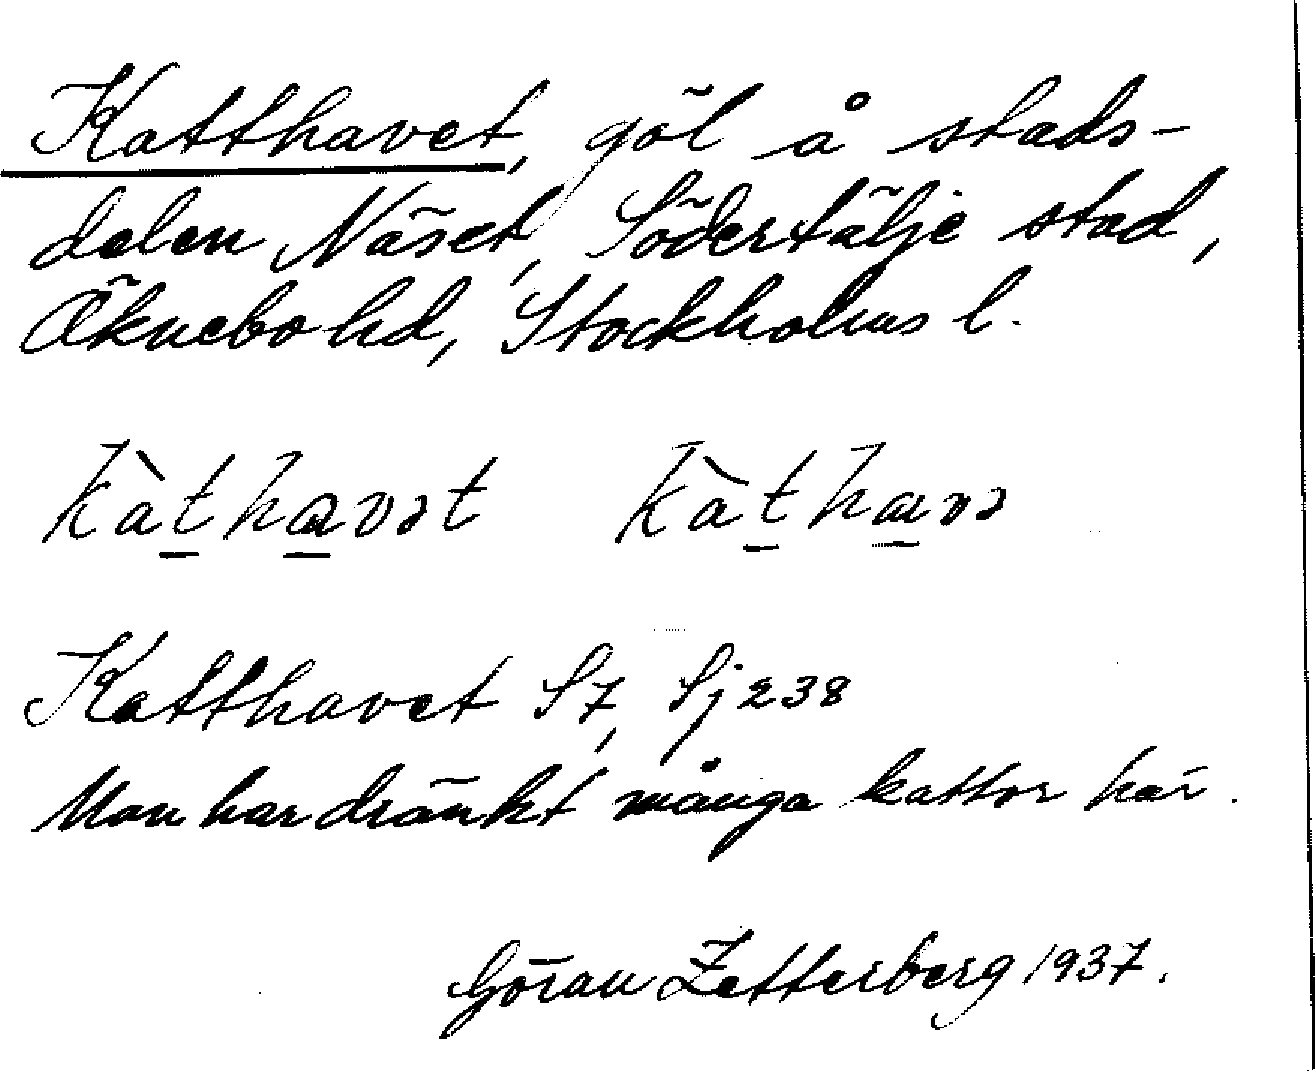 Katthavet, göl å stads-
delen Näset, Södertälje stad,
Öknebo hd, Stockholms l.
kàt̲ha̲vət kàt̲ha̲və
Katthavet S7, Sj 238
Man har dränkt många kattor här.
Göran Zetterberg 1937.